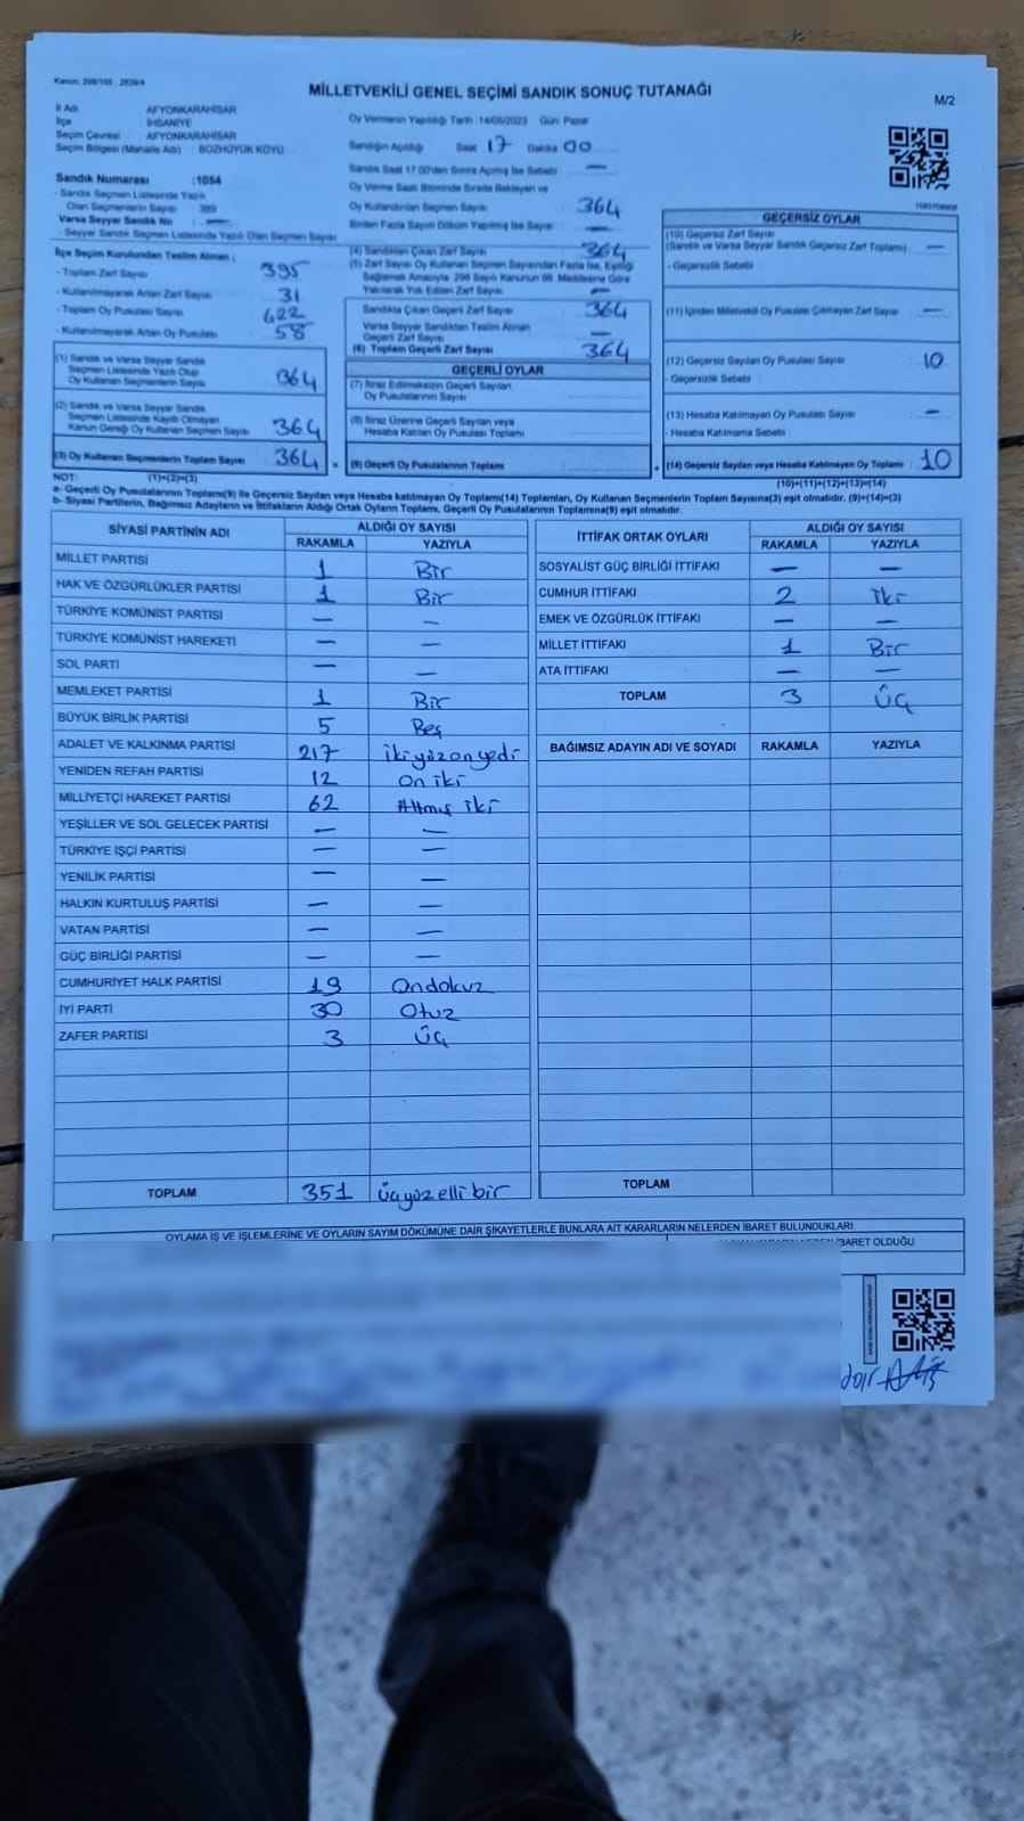 MİLLETVEKİLİ GENEL SEÇİMİ SANDIK SONUÇ TUTANAĞI
M/2
İl Adı : AFYONKARAHİSAR
İlçe : İHSANİYE
Seçim Çevresi : AFYONKARAHİSAR
Seçim Bölgesi (Mahalle Adı) : BOZHÜYÜK KÖYÜ
Oy Vermenin Yapıldığı Tarih : 14/05/2023 Gün: Pazar
Sandığın Açıldığı Saat 17 Dakika 00
Sandık Saat 17.00'den Sonra Açılmış İse Sebebi —
Oy Verme Saati Bitiminde Sırada Bekleyen ve
Oy Kullandırılan Seçmen Sayısı 364
Sandık Numarası : 1054
- Sandık Seçmen Listesinde Yazılı
Olan Seçmenlerin Sayısı : 389
Varsa Seyyar Sandık No : —
- Seyyar Sandık Seçmen Listesinde Yazılı Olan Seçmen Sayısı
İlçe Seçim Kurulundan Teslim Alınan ;
- Toplam Zarf Sayısı 395
- Kullanılmayarak Artan Zarf Sayısı 31
- Toplam Oy Pusulası Sayısı 422
- Kullanılmayarak Artan Oy Pusulası 58
(1) Sandık ve Varsa Seyyar Sandık
Seçmen Listesinde Yazılı Olup
Oy Kullanan Seçmenlerin Sayısı 364
(2) Sandık ve Varsa Seyyar Sandık
Seçmen Listesinde Kayıtlı Olmayan
Kanun Gereği Oy Kullanan Seçmen Sayısı 364
(3) Oy Kullanan Seçmenlerin Toplam Sayısı 364
(1)+(2)=(3)
(4) Sandıktan Çıkan Zarf Sayısı 364
(5) Zarf Sayısı Oy Kullanan Seçmen Sayısından Fazla İse, Eşitliği
Sağlamak Amacıyla 298 Sayılı Kanunun 98. Maddesine Göre
Yakılarak Yok Edilen Zarf Sayısı —
Sandıkta Çıkan Geçerli Zarf Sayısı 364
Varsa Seyyar Sandıktan Teslim Alınan
Geçerli Zarf Sayısı —
(6) Toplam Geçerli Zarf Sayısı 364
GEÇERLİ OYLAR
(7) İtiraz Edilmeksizin Geçerli Sayılan
Oy Pusulalarının Sayısı
(8) İtiraz Üzerine Geçerli Sayılan veya
Hesaba Katılan Oy Pusulası Toplamı
(9) Geçerli Oy Pusulalarının Toplamı
GEÇERSİZ OYLAR
(10) Geçersiz Zarf Sayısı
(Sandık ve Varsa Seyyar Sandık Geçersiz Zarf Toplamı) —
- Geçersizlik Sebebi
(11) İçinden Milletvekili Oy Pusulası Çıkmayan Zarf Sayısı —
(12) Geçersiz Sayılan Oy Pusulası Sayısı 10
- Geçersizlik Sebebi
(13) Hesaba Katılmayan Oy Pusulası Sayısı —
- Hesaba Katılmama Sebebi
(14) Geçersiz Sayılan veya Hesaba Katılmayan Oy Toplamı 10
(10)+(11)+(12)+(13)=(14)
NOT:
a- Geçerli Oy Pusulalarının Toplamı(9) ile Geçersiz Sayılan veya Hesaba katılmayan Oy Toplamı(14) Toplamları, Oy Kullanan Seçmenlerin Toplam Sayısına(3) eşit olmalıdır. (9)+(14)=(3)
b- Siyasi Partilerin, Bağımsız Adayların ve İttifakların Aldığı Ortak Oyların Toplamı, Geçerli Oy Pusulalarının Toplamına(9) eşit olmalıdır.
SİYASİ PARTİNİN ADI ALDIĞI OY SAYISI
RAKAMLA YAZIYLA
MİLLET PARTİSİ 1 Bir
HAK VE ÖZGÜRLÜKLER PARTİSİ 1 Bir
TÜRKİYE KOMÜNİST PARTİSİ — —
TÜRKİYE KOMÜNİST HAREKETİ — —
SOL PARTİ — —
MEMLEKET PARTİSİ 1 Bir
BÜYÜK BİRLİK PARTİSİ 5 Beş
ADALET VE KALKINMA PARTİSİ 217 ikiyüzonyedi
YENİDEN REFAH PARTİSİ 12 On iki
MİLLİYETÇİ HAREKET PARTİSİ 62 Altmış iki
YEŞİLLER VE SOL GELECEK PARTİSİ — —
TÜRKİYE İŞÇİ PARTİSİ — —
YENİLİK PARTİSİ — —
HALKIN KURTULUŞ PARTİSİ — —
VATAN PARTİSİ — —
GÜÇ BİRLİĞİ PARTİSİ — —
CUMHURİYET HALK PARTİSİ 19 Ondokuz
İYİ PARTİ 30 Otuz
ZAFER PARTİSİ 3 Üç
TOPLAM 351 Üçyüz elli bir
İTTİFAK ORTAK OYLARI ALDIĞI OY SAYISI
RAKAMLA YAZIYLA
SOSYALİST GÜÇ BİRLİĞİ İTTİFAKI — —
CUMHUR İTTİFAKI 2 İki
EMEK VE ÖZGÜRLÜK İTTİFAKI — —
MİLLET İTTİFAKI 1 Bir
ATA İTTİFAKI — —
TOPLAM 3 Üç
BAĞIMSIZ ADAYIN ADI VE SOYADI RAKAMLA YAZIYLA
TOPLAM
OYLAMA İŞ VE İŞLEMLERİNE VE OYLARIN SAYIM DÖKÜMÜNE DAİR ŞİKAYETLERLE BUNLARA AİT KARARLARIN NELERDEN İBARET BULUNDUKLARI
OLDUĞU